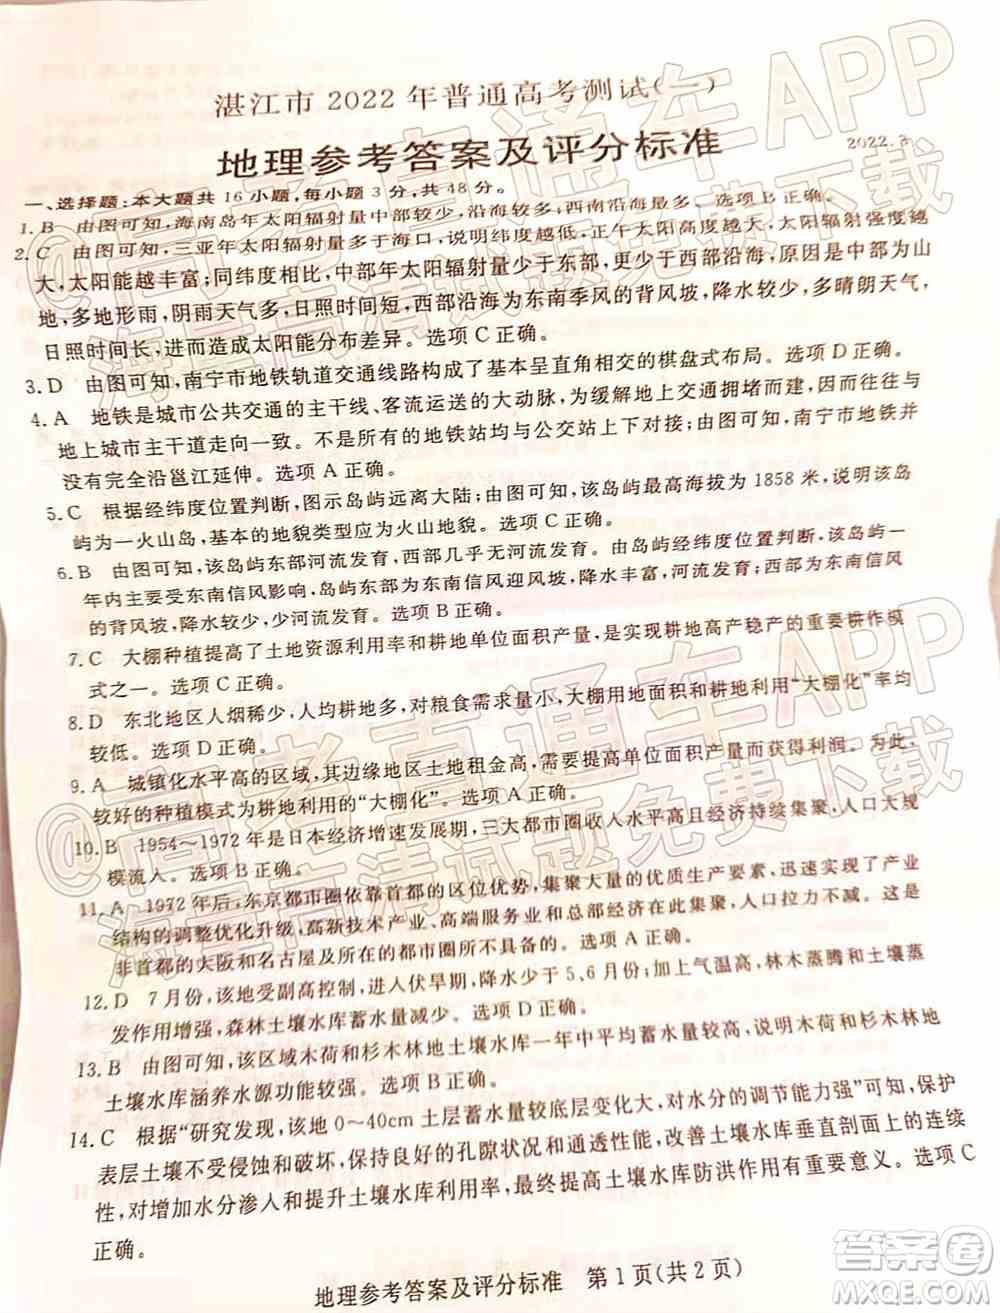 湛江市2022年普通高考测试(一)
地理参考答案及评分标准
2022.3
一、选择题:本大题共16小题,每小题3分,共48分。
1.B 由图可知,海南岛年太阳辐射量中部较少,沿海较多,西南沿海最多。选项B正确。
2.C 由图可知,三亚年太阳辐射量多于海口,说明纬度越低,正午太阳高度越大,太阳辐射强度越
大,太阳能越丰富;同纬度相比,中部年太阳辐射量少于东部,更少于西部沿海,原因是中部为山
地,多地形雨,阴雨天气多,日照时间短,西部沿海为东南季风的背风坡,降水较少,多晴朗天气,
日照时间长,进而造成太阳能分布差异。选项C正确。
3.D 由图可知,南宁市地铁轨道交通线路构成了基本呈直角相交的棋盘式布局。选项D正确。
4.A 地铁是城市公共交通的主干线、客流运送的大动脉,为避免地上交通拥堵而建,因而大多与
地上城市主干道走向一致。不是所有的地铁站均与公交站上下对应,由图可知,南宁市地铁并
没有完全沿邕江延伸。选项A正确。
5.C 根据经纬度位置判断,图示岛屿远离大陆;由图可知,该岛屿最高海拔为1858米,说明该岛
屿为一火山岛,基本的地貌类型应为火山地貌。选项C正确。
6.B 由图可知,该岛屿东部河流发育,西部几乎无河流发育。由岛屿经纬度位置判断,该岛屿一
年内都受东南信风影响,岛屿东部为东南信风迎风坡,降水丰富,河流发育;西部为东南信风
的背风坡,降水较少,少河流发育。选项B正确。
7.C 大棚种植提高了土地资源利用率和耕地单位面积产量,是实现耕地高产稳产的重要耕作模
式之一。选项C正确。
8.D 东北地区人烟稀少,人均耕地多,对粮食需求量小,大棚用地面积和耕地利用“大棚化”率均
较低。选项D正确。
9.A 城镇化水平高的区域,其边缘地区土地租金高,需要提高单位面积产量而获得利润。为此,
较好的种植模式为耕地利用的“大棚化”。选项A正确。
10.B 1954～1972年是日本经济增速发展期,三大都市圈收入水平高且经济持续集聚,人口大规
模流入。选项B正确。
11.A 1972年后,东京都市圈依靠首都的区位优势,集聚大量的优质生产要素,迅速实现了产业
结构的调整优化升级,高新技术产业、高端服务业和总部经济在此集聚,人口拉力不减。这是
非首都的大阪和名古屋及沂川的都市圈所不具备的。选项A正确。
12.D 7月份,该地受副高控制,进入伏旱期,降水少于5、6月份;加上气温高,林木蒸腾、土壤蒸
发作用增强,森林土壤水库蓄水量减少。选项D正确。
13.B 由图可知,该区域木荷和杉木林地土壤水库一年中平均蓄水量较高,说明木荷和杉木林地
土壤水库涵养水源功能较强。选项B正确。
14.C 根据“研究发现,该地0～40cm土层蓄水量较底层变化大,对水分的调节能力强”可知,保护
表层土壤不受侵蚀和破坏,保持良好的孔隙状况和通透性能,改善土壤水库垂直剖面的连续
性,对增加水分渗入和提升土壤水库利用率,最终提高土壤水库防洪作用有重要意义。选项C
正确。
地理参考答案及评分标准 第1页(共2页)
@高考直通车APP
海量高清试题免费下载
@高考直通车APP
海量高清试题免费下载
答案圈
MXQE.COM